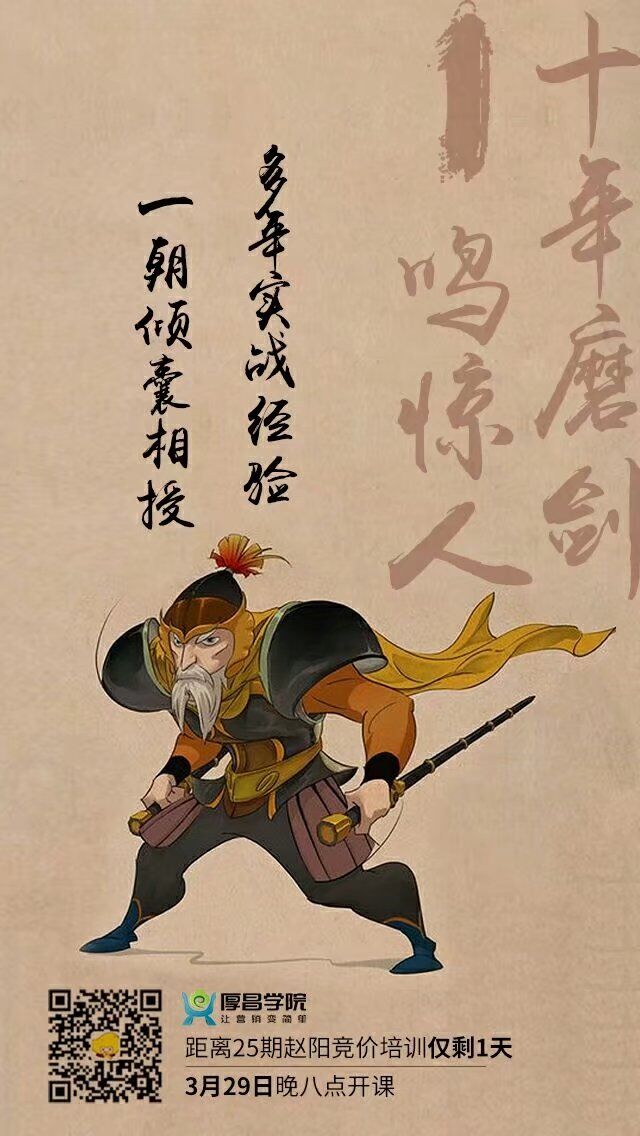 十年磨剑
一鸣惊人
多年实战经验
一朝倾囊相授
厚昌学院
让营销变简单
距离25期赵阳竞价培训仅剩1天
3月29日晚八点开课